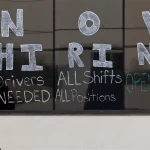 NOW
HIRIN
Drivers ALL Shifts
NEEDED ALL Positions